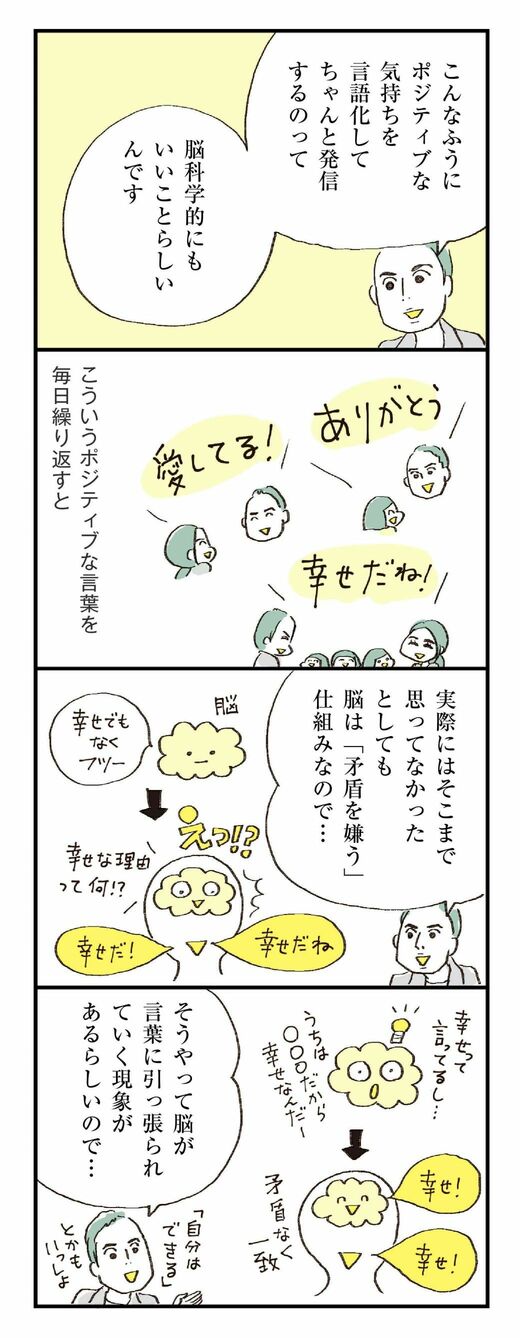 こんなふうに
ポジティブな
気持ちを
言語化して
ちゃんと発信
するのって
脳科学的にも
いいことらしい
んです
こういうポジティブな言葉を
毎日繰り返すと
ありがとう
愛してる!
幸せだね!
実際にはそこまで
思ってなかった
としても
脳は「矛盾を嫌う」
仕組みなので…
脳
幸せでも
なく
フツー
えっ!?
幸せな理由
って何!?
幸せだね
幸せだ!
幸せって
言ってるし…
うちは
〇〇〇だから
幸せなんだー
矛盾なく
一致
幸せ!
幸せ!
そうやって脳が
言葉に引っ張られ
ていく現象が
あるらしいので…
「自分は
できる」
とかも
いっしょ